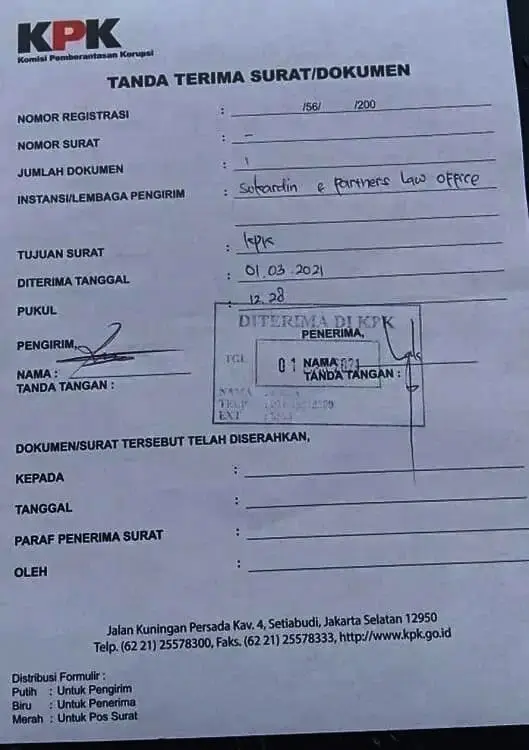 KPK
Komisi Pemberantasan Korupsi
TANDA TERIMA SURAT/DOKUMEN
NOMOR REGISTRASI : /56/ /200
NOMOR SURAT : -
JUMLAH DOKUMEN : 1
INSTANSI/LEMBAGA PENGIRIM : Sukardin & Partners Law Office
TUJUAN SURAT : KPK
DITERIMA TANGGAL : 01.03.2021
PUKUL : 12.28
DITERIMA DI KPK
PENGIRIM, PENERIMA,
TGL 01
NAMA : NAMA
TANDA TANGAN : TANDA TANGAN :
NAMA
TELP
EXT
DOKUMEN/SURAT TERSEBUT TELAH DISERAHKAN,
KEPADA :
TANGGAL :
PARAF PENERIMA SURAT :
OLEH :
Jalan Kuningan Persada Kav. 4, Setiabudi, Jakarta Selatan 12950
Telp. (62 21) 25578300, Faks. (62 21) 25578333, http://www.kpk.go.id
Distribusi Formulir :
Putih : Untuk Pengirim
Biru : Untuk Penerima
Merah : Untuk Pos Surat